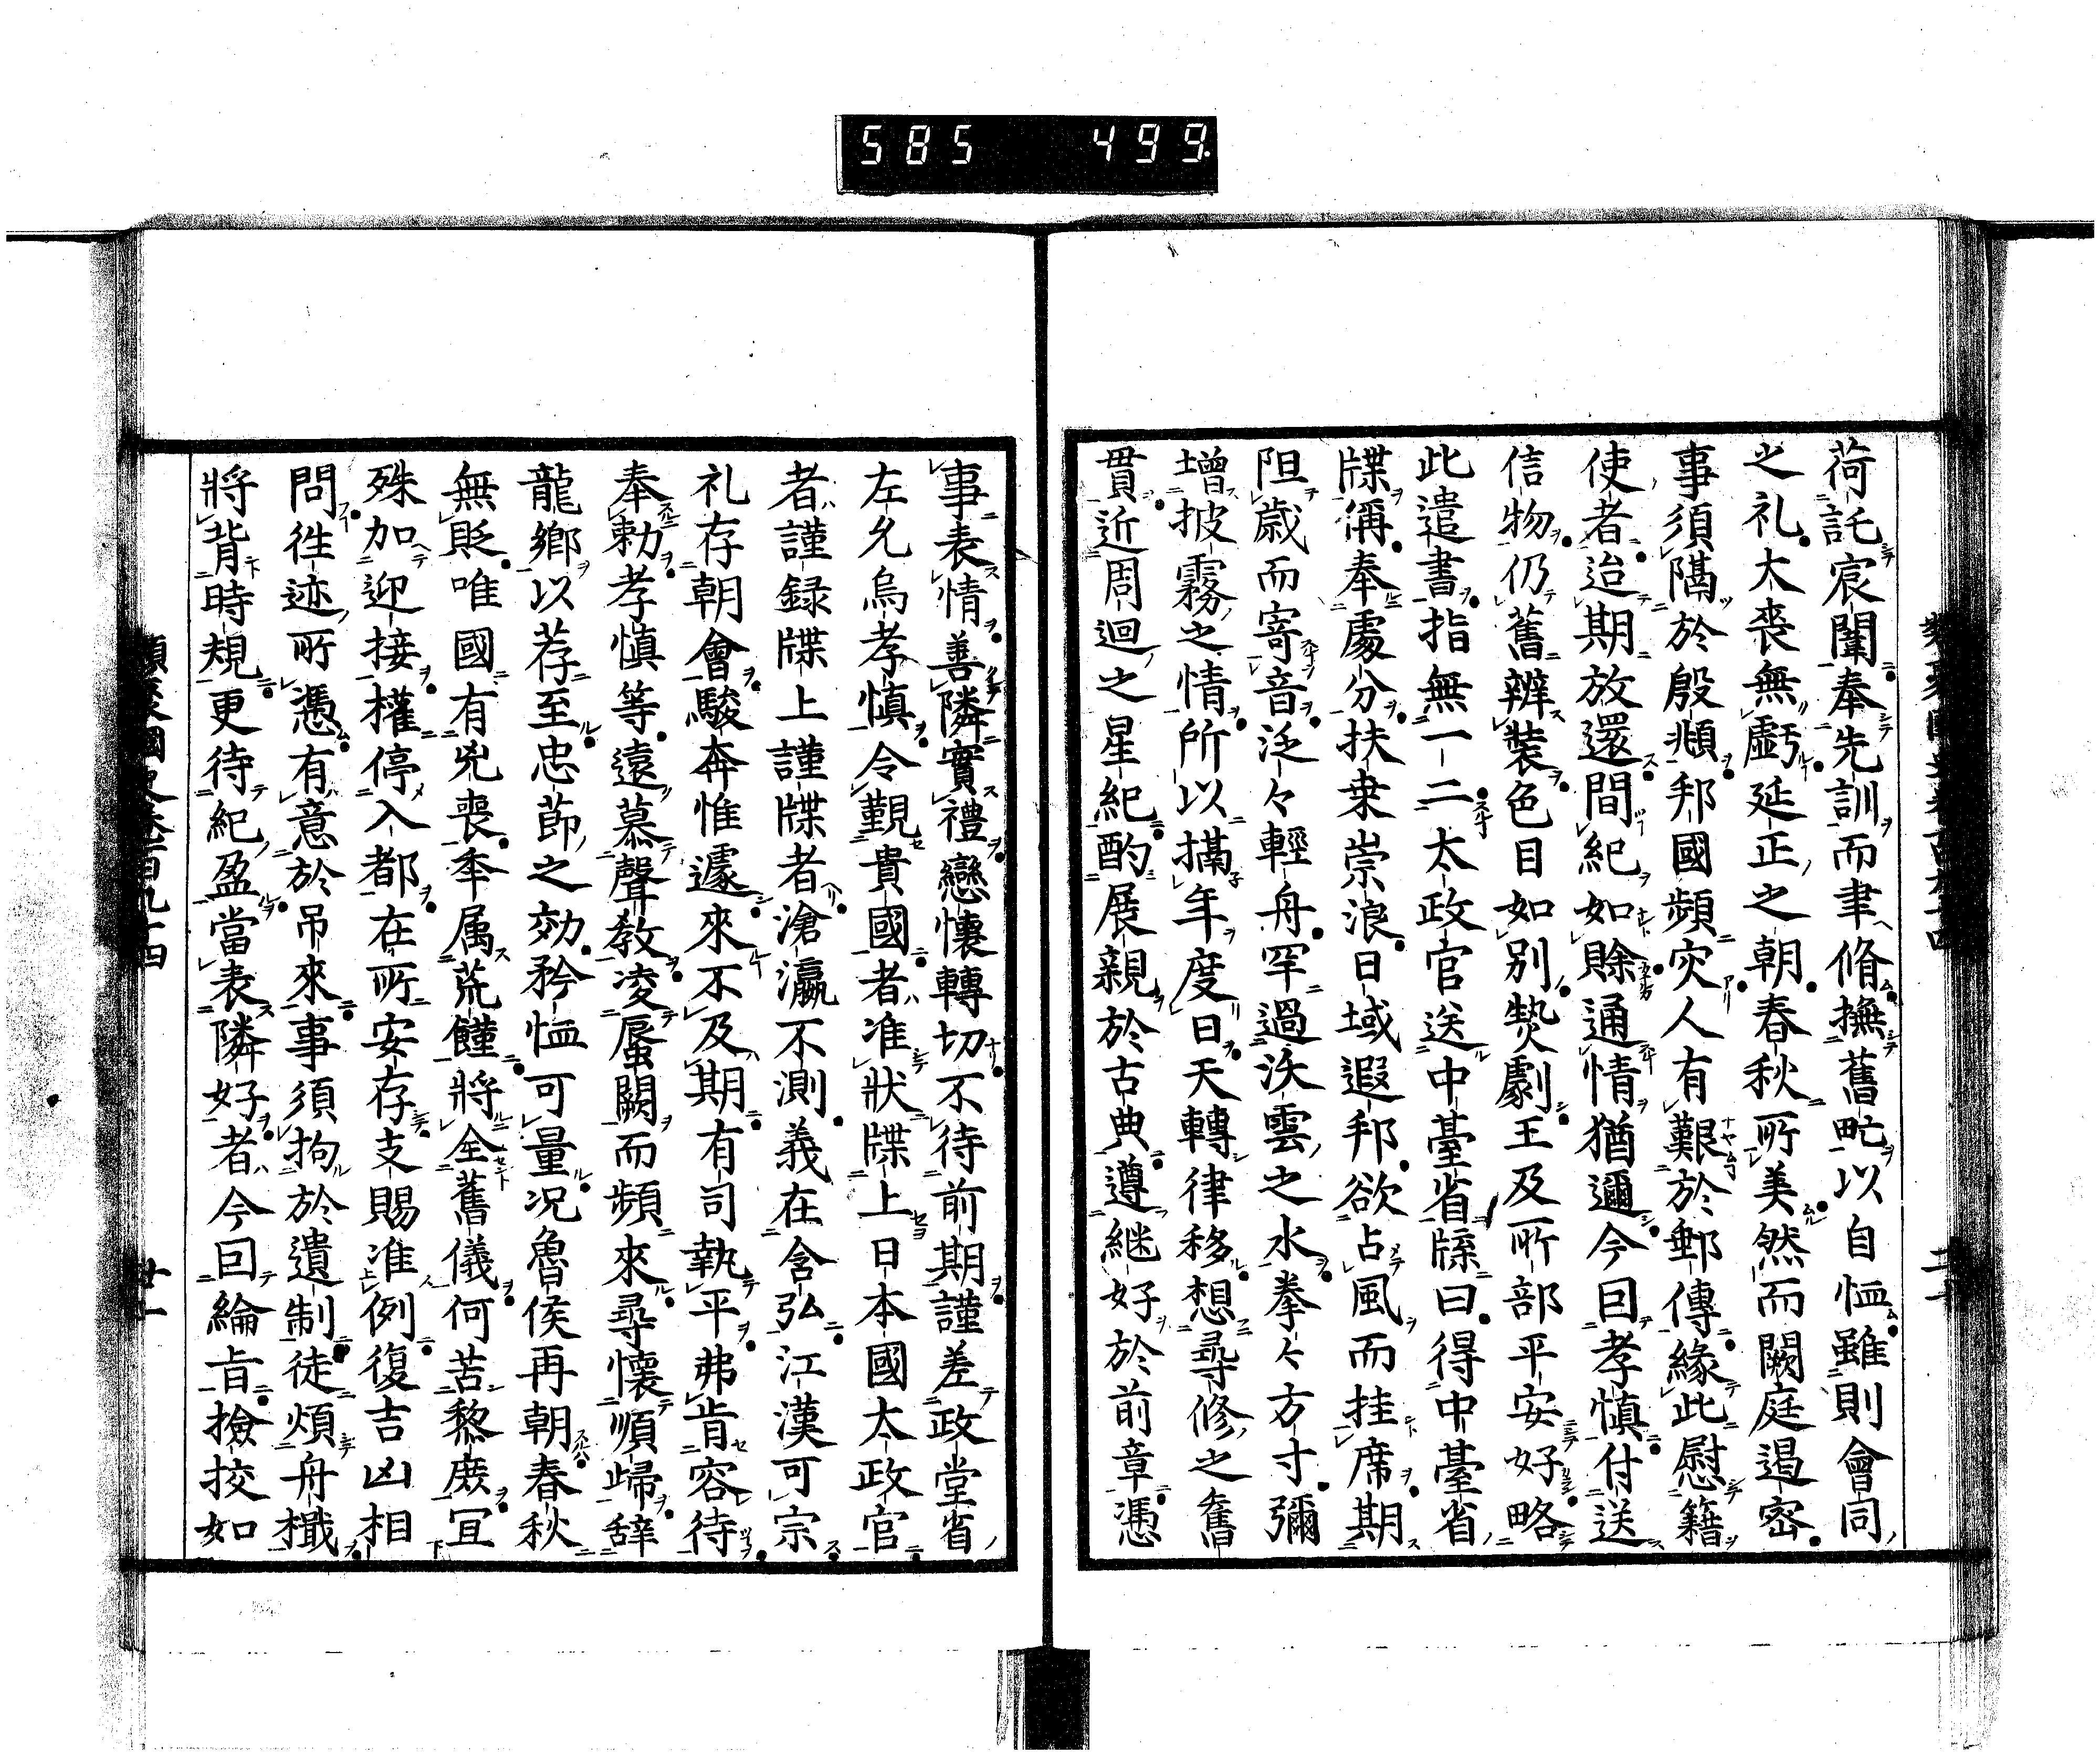 585 499.
荷託宸闈奉先訓而聿脩撫舊甿以自恤雖則會同
之礼大喪無虧延正之朝春秋所美然而闕庭遏密
事須隔於殷頫邦國頻灾人有艱於郵傳緣此慰籍
使者迨期放還間紀如賒通情猶邇今回孝慎付送
信物仍舊辨裝色目如別㷶劇王及所部平安好略
此遣書指無一二太政官送中臺省牒曰得中臺省
牒偁奉處分扶桒崇浪日域遐邦欲占風而挂席期
阻歳而寄音泛々輕舟罕過沃雲之水拳々方寸彌
增披霧之情所以擶年度日天轉律移想尋修之舊
貫近周迴之星紀酌展親於古典遵継好於前章憑
事表情善隣實禮戀懐轉切不待前期謹差政堂省
左允烏孝慎令覲貴國者准狀牒上日本國太政官
者謹録牒上謹牒者滄瀛不測義在含弘江漢可宗
礼存朝會駿奔惟遽來不及期有司執平弗肯容待
奉勅孝慎等遠慕聲教凌蜃闕而頻來尋懐順歸辭
龍鄉以荐至忠節之効矜恤可量况魯侯再朝春秋
無貶唯國有兇喪年属荒饉將全舊儀何苦黎庻冝
殊加迎接權停入都在所安存支賜准例復吉凶相
問徃迹所憑有意於吊來事須拘於遺制徒煩舟檝
將背時規更待紀盈當表隣好者今回綸旨撿挍如
類聚國史卷百九十四
廿一